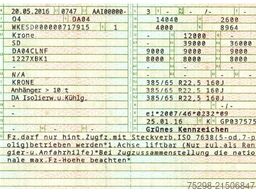 20.05.2016 0747 AAI00000- 3
04 DA04 14040 2600
WKESD000000717915 1 4000 8964
Krone - 12000 -
SD - 39000 36000
DA04CLNF - 9000 9000 9000
1227XBK1 - 9000 9000 9000
N/A
KRONE 385/65 R22.5 160J
Anhänger > 10 t 385/65 R22.5 160J
DA Isolierw.u.Kühlg. 385/65 R22.5 160J
- e1*2007/46*0232*09
25.01.16 K GP037575
Grünes Kennzeichen
Fz.darf nur hint.Zugfz.mit Steckverb.ISO 7638(5-od.7-p
olig)betrieben werden*1 Achse liftbar (Nur zul.als Ran
gier-u.Anfahrhilfe)*Bei Zugzusammenstellung die natio
nale max.Fz-Hoehe beachten*
75298-21506847